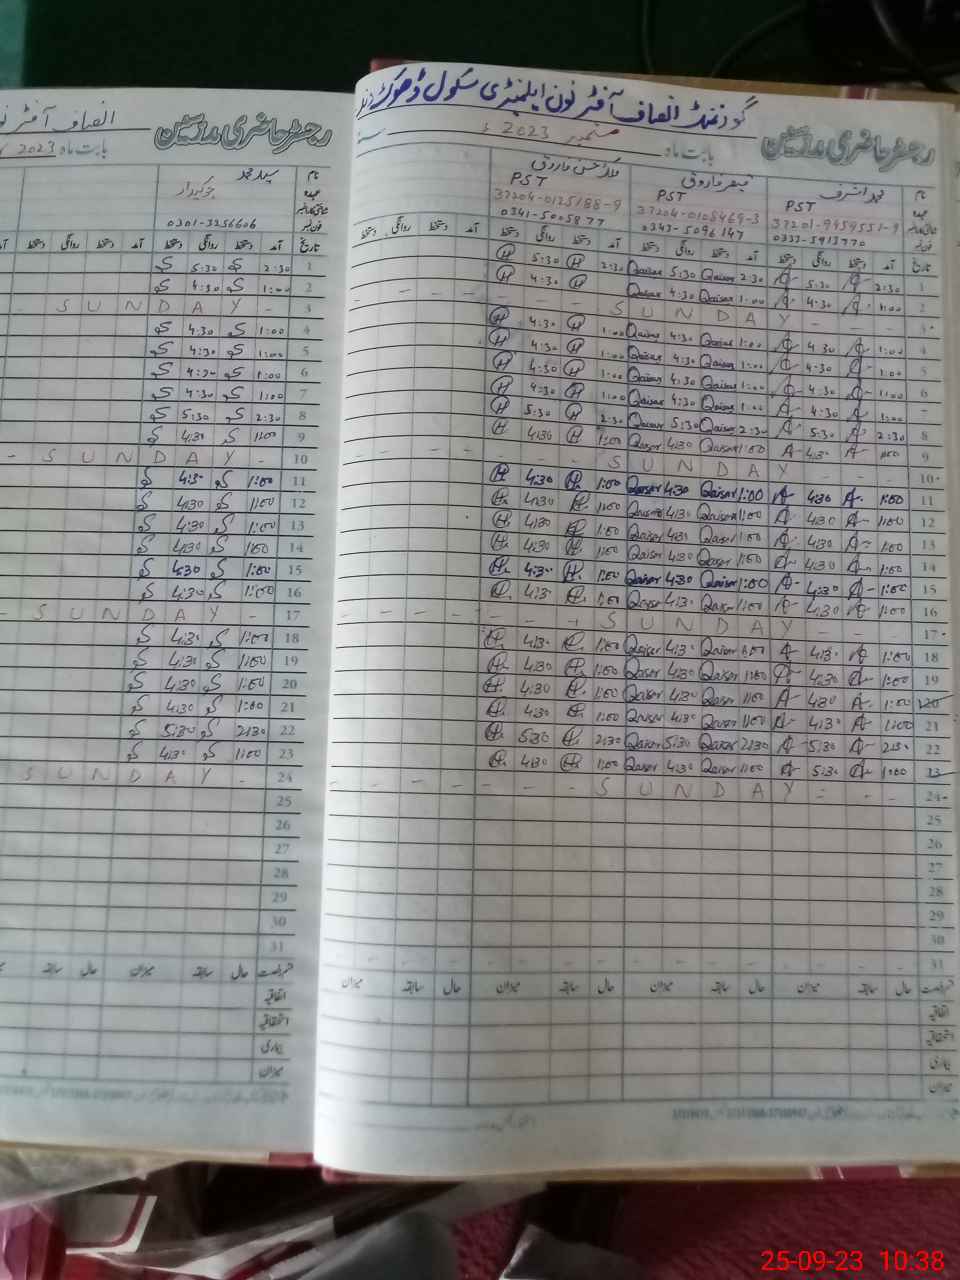 گورنمنٹ انصاف آفٹر نون ایلمنٹری سکول ڈھوک
رجسٹر حاضری مدرسین بابت ماہ ستمبر 2023ء
نام محمد اشرف قیصر فاروق حسن فاروق
عہدہ PST PST PST
37201-9459551-9 37204-0108469-3 37204-0125188-9
فون نمبر 0333-5913770 0343-5096147 0341-5005877
تاریخ آمد دستخط روانگی دستخط آمد دستخط روانگی دستخط آمد دستخط روانگی دستخط آمد دستخط روانگی دستخط
1 2:30 5:30 2:30 Qaisar 5:30 Qaisar 2:30 H 5:30 H
2 1:00 4:30 1:00 Qaisar 4:30 Qaisar H 4:30 H
3 SUNDAY
4 1:00 4:30 1:00 Qaisar 4:30 Qaisar 1:00 H 4:30 H
5 1:00 4:30 1:00 Qaisar 4:30 Qaisar 1:00 H 4:30 H
6 1:00 4:30 1:00 Qaisar 4:30 Qaisar 1:00 H 4:30 H
7 1:00 4:30 1:00 Qaisar 4:30 Qaisar 1:00 H 4:30 H
8 2:30 5:30 2:30 Qaisar 5:30 Qaisar 2:30 H 5:30 H
9 1:00 A 4:30 A 1:00 Qaisar 4:30 Qaisar 1:00 H 4:30 H
10 SUNDAY
11 1:00 A 4:30 A 1:00 Qaisar 4:30 Qaisar 1:00 H 4:30 H
12 1:00 A 4:30 A 1:00 Qaisar 4:30 Qaisar 1:00 H 4:30 H
13 1:00 A 4:30 A 1:00 Qaisar 4:30 Qaisar 1:00 H 4:30 H
14 1:00 A 4:30 A 1:00 Qaisar 4:30 Qaisar 1:00 H 4:30 H
15 1:00 A 4:30 A 1:00 Qaisar 4:30 Qaisar 1:00 H 4:30 H
16 1:00 A 4:30 A 1:00 Qaisar 4:30 Qaisar 1:00 H 4:30 H
17 SUNDAY
18 1:00 A 4:30 A 1:00 Qaisar 4:30 Qaisar 1:00 H 4:30 H
19 1:00 A 4:30 A 1:00 Qaisar 4:30 Qaisar 1:00 H 4:30 H
20 1:00 A 4:30 A 1:00 Qaisar 4:30 Qaisar 1:00 H 4:30 H
21 1:00 A 4:30 A 1:00 Qaisar 4:30 Qaisar 1:00 H 4:30 H
22 2:30 A 5:30 A 2:30 Qaisar 5:30 Qaisar 2:30 H 5:30 H
23 1:00 A 5:30 A 1:00 Qaisar 4:30 Qaisar 1:00 H 4:30 H
24 SUNDAY
25
26
27
28
29
30
31
رخصت حال سابقہ میزان حال سابقہ میزان حال سابقہ میزان حال سابقہ میزان
اتفاقیہ
استحقاقیہ
بیماری
میزان
انصاف آفٹر نون
رجسٹر حاضری مدرسین
بابت ماہ 2023
نام محمد
عہدہ چوکیدار
فون نمبر 0301-3256606
تاریخ آمد دستخط روانگی دستخط آمد دستخط روانگی دستخط
1 2:30 5:30
2 1:00 4:30
3 SUNDAY
4 1:00 4:30
5 1:00 4:30
6 1:00 4:30
7 1:00 4:30
8 2:30 5:30
9 1:00 4:30
10 SUNDAY
11 1:00 4:30
12 1:00 4:30
13 1:00 4:30
14 1:00 4:30
15 1:00 4:30
16 1:00 4:30
17 SUNDAY
18 1:00 4:30
19 1:00 4:30
20 1:00 4:30
21 1:00 4:30
22 2:30 5:30
23 1:00 4:30
24 SUNDAY
25
26
27
28
29
30
31
رخصت حال سابقہ میزان حال سابقہ
اتفاقیہ
استحقاقیہ
بیماری
میزان
25-09-23 10:38